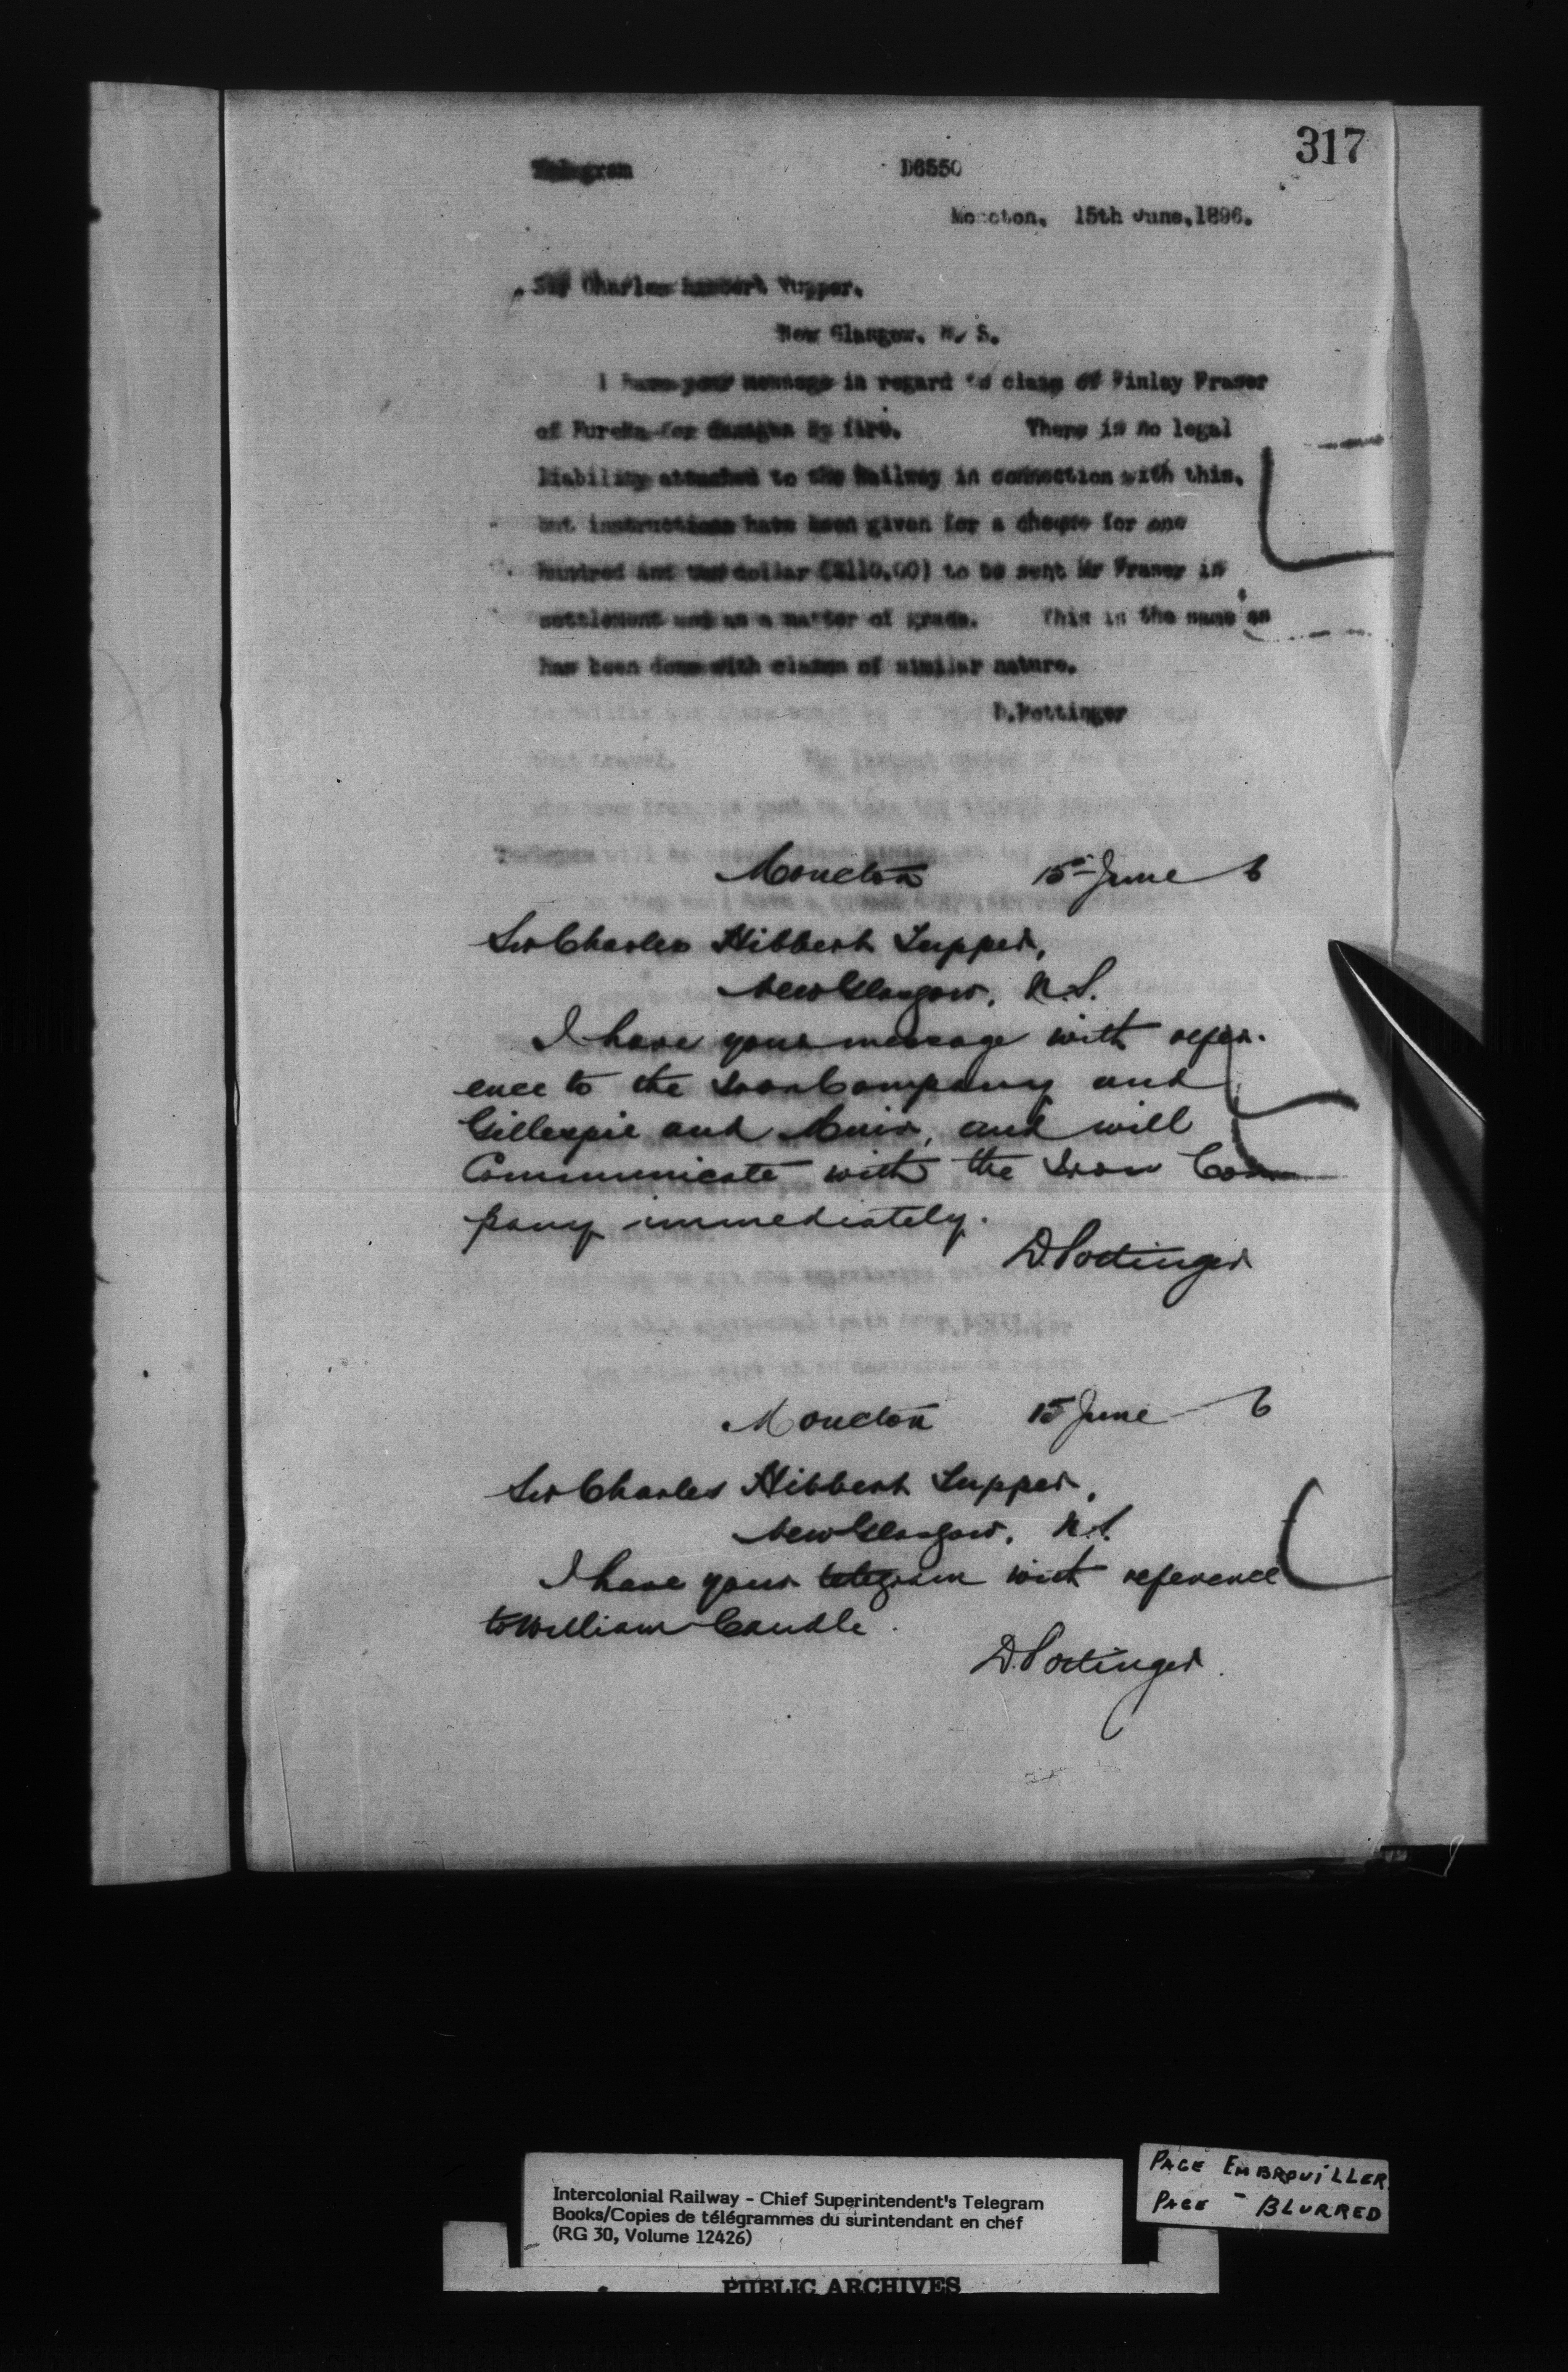 317
Telegram D6550
Moncton, 15th June, 1896.
Sir Charles Hibbert Tupper,
New Glasgow, N. S.
I have your message in regard to claim of Finlay Fraser
of Eureka for damages by fire. There is no legal
liability attached to the Railway in connection with this,
but instructions have been given for a cheque for one
hundred and dollar ($110.00) to be sent Mr Fraser in
settlement and as a matter of grace. This is the same as
has been done with claims of similar nature.
D. Pottinger
Moncton 15th June 6
Sir Charles Hibbert Tupper,
New Glasgow, N.S.
I have your message with refer-
ence to the Iron Company and
Gillespie and Muir, and will
Communicate with the Iron Com
pany immediately.
D. Pottinger
Moncton 15 June 6
Sir Charles Hibbert Tupper,
New Glasgow, N.S.
I have your telegram with reference
to William Caudle.
D. Pottinger.
PAGE EMBROUILLER
PAGE - BLURRED
Intercolonial Railway - Chief Superintendent's Telegram
Books/Copies de télégrammes du surintendant en chef
(RG 30, Volume 12426)
PUBLIC ARCHIVES